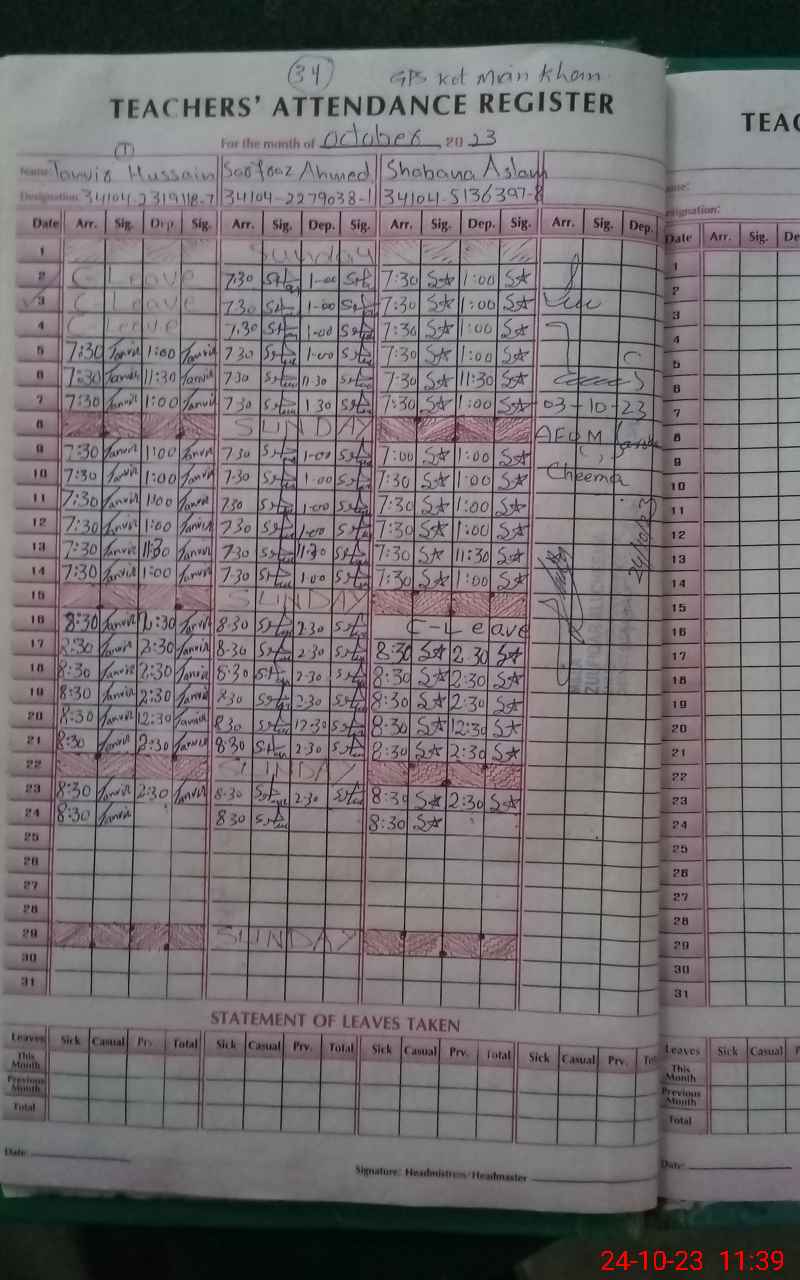 34 GPS Kot Main Khan
TEACHERS' ATTENDANCE REGISTER
For the month of October 2023
1
Name: Tanvir Hussain Sarfraz Ahmed Shabana Aslam
Designation: 34104-2319118-7 34104-2279038-1 34104-5136397-8
Date Arr. Sig. Dep. Sig. Arr. Sig. Dep. Sig. Arr. Sig. Dep. Sig. Arr. Sig. Dep.
1 Sunday
2 C Leave 7:30 1-00 7:30 1:00
3 C Leave 7:30 1-00 7:30 1:00
4 C-Leave 7.30 1-00 7:30 1:00
5 7:30 Tanvir 1:00 Tanvir 730 1-00 7:30 1:00
6 7:30 Tanvir 11:30 Tanvir 730 11-30 7:30 11:30
7 7:30 Tanvir 1:00 Tanvir 730 1 30 7:30 1:00 03-10-23
8 SUNDAY AEO M
9 7:30 Tanvir 1:00 Tanvir 730 1-00 7:00 1:00
10 7:30 Tanvir 1:00 Tanvir 7-30 1-00 7:30 1:00 Cheema
11 7:30 Tanvir 1:00 Tanvir 730 1-00 7:30 1:00
12 7:30 Tanvir 1:00 Tanvir 730 1-00 7:30 1:00
13 7:30 Tanvir 11:30 Tanvir 7-30 11-30 7:30 11:30 24/10/23
14 7:30 Tanvir 1:00 Tanvir 7-30 1-00 7:30 1:00
15 SUNDAY
16 8:30 Tanvir 2:30 Tanvir 8-30 2-30 C-Leave
17 8:30 Tanvir 2:30 Tanvir 8-30 2-30 8:30 2:30
18 8:30 Tanvir 2:30 Tanvir 8-30 2-30 8:30 2:30
19 8:30 Tanvir 2:30 Tanvir 830 2-30 8:30 2:30
20 8:30 Tanvir 12:30 Tanvir 830 12-30 8:30 12:30
21 8:30 Tanvir 2:30 Tanvir 8-30 2-30 8:30 2:30
22 SUNDAY
23 8:30 Tanvir 2:30 Tanvir 8-30 2-30 8:30 2:30
24 8:30 Tanvir 830 8:30
25
26
27
28
29 SUNDAY
30
31
STATEMENT OF LEAVES TAKEN
Leaves Sick Casual Prv. Total Sick Casual Prv. Total Sick Casual Prv. Total Sick Casual Prv.
This Month
Previous Month
Total
Date:
Signature: Headmistress/Headmaster
TEAC
Date Arr. Sig. De
1
2
3
4
5
6
7
8
9
10
11
12
13
14
15
16
17
18
19
20
21
22
23
24
25
26
27
28
29
30
31
Leaves Sick Casual
This Month
Previous Month
Total
Date:
24-10-23 11:39